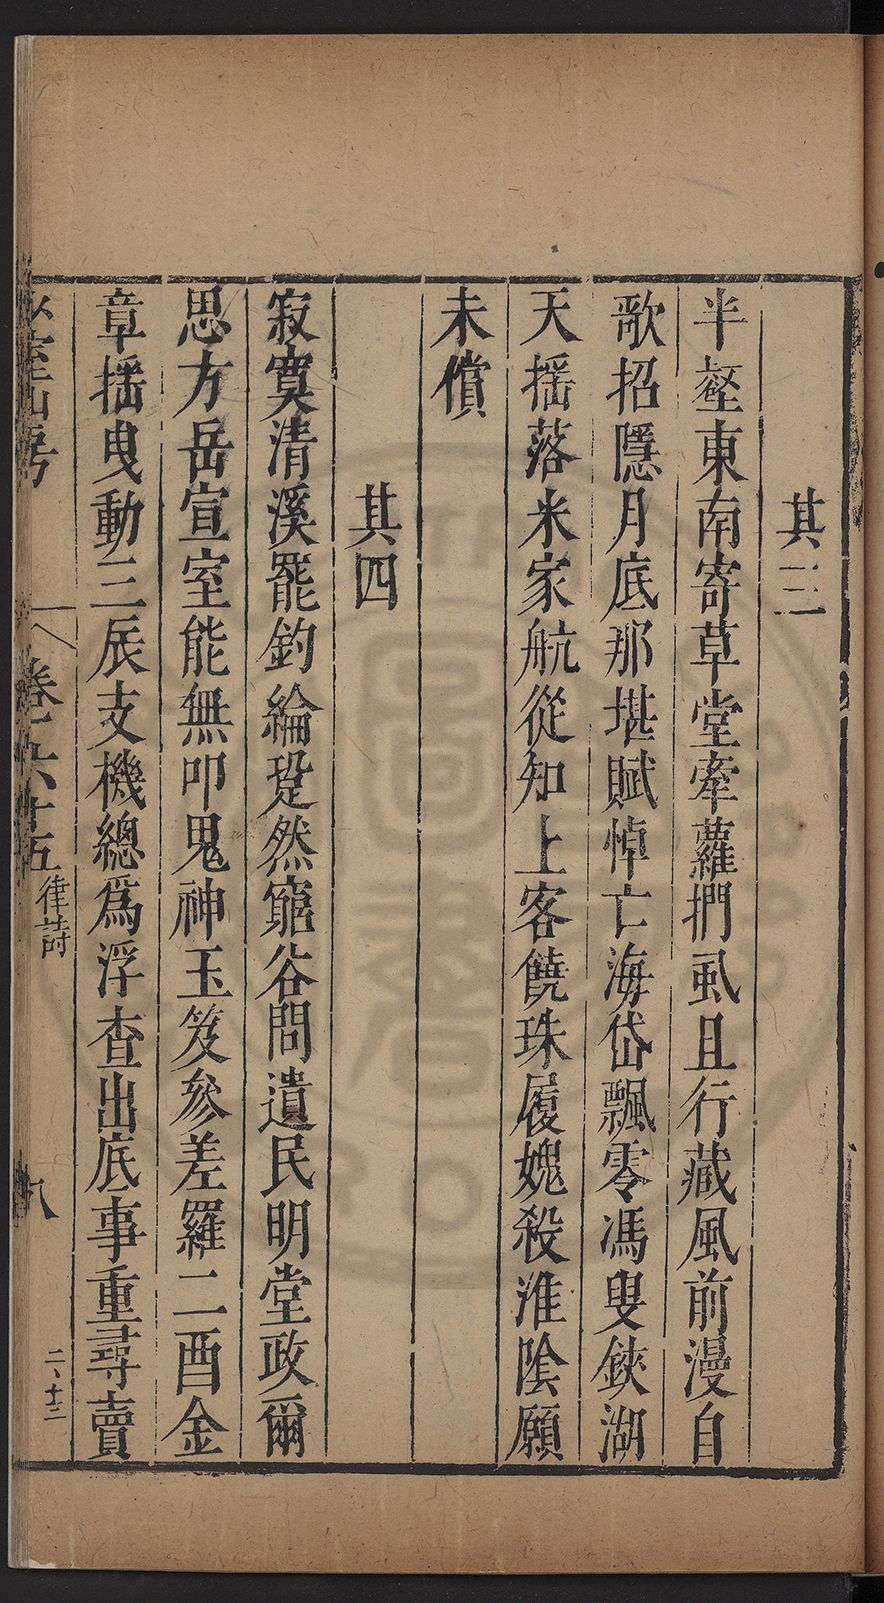 其三
半壑東南寄草堂牽蘿捫虱且行藏風前漫自
歌招隱月底那堪賦悼亡海岱飄零馮叟鋏湖
天揺落米家航從知上客饒珠履媿殺淮陰願
未償
其四
寂寞清溪罷釣綸跫然窮谷問遺民明堂政爾
思方岳宣室能無叩鬼神玉笈參差羅二酉金
章揺曳動三辰支機總爲浮查出底事重尋賣
卷六十五
律詩
八
二、十三